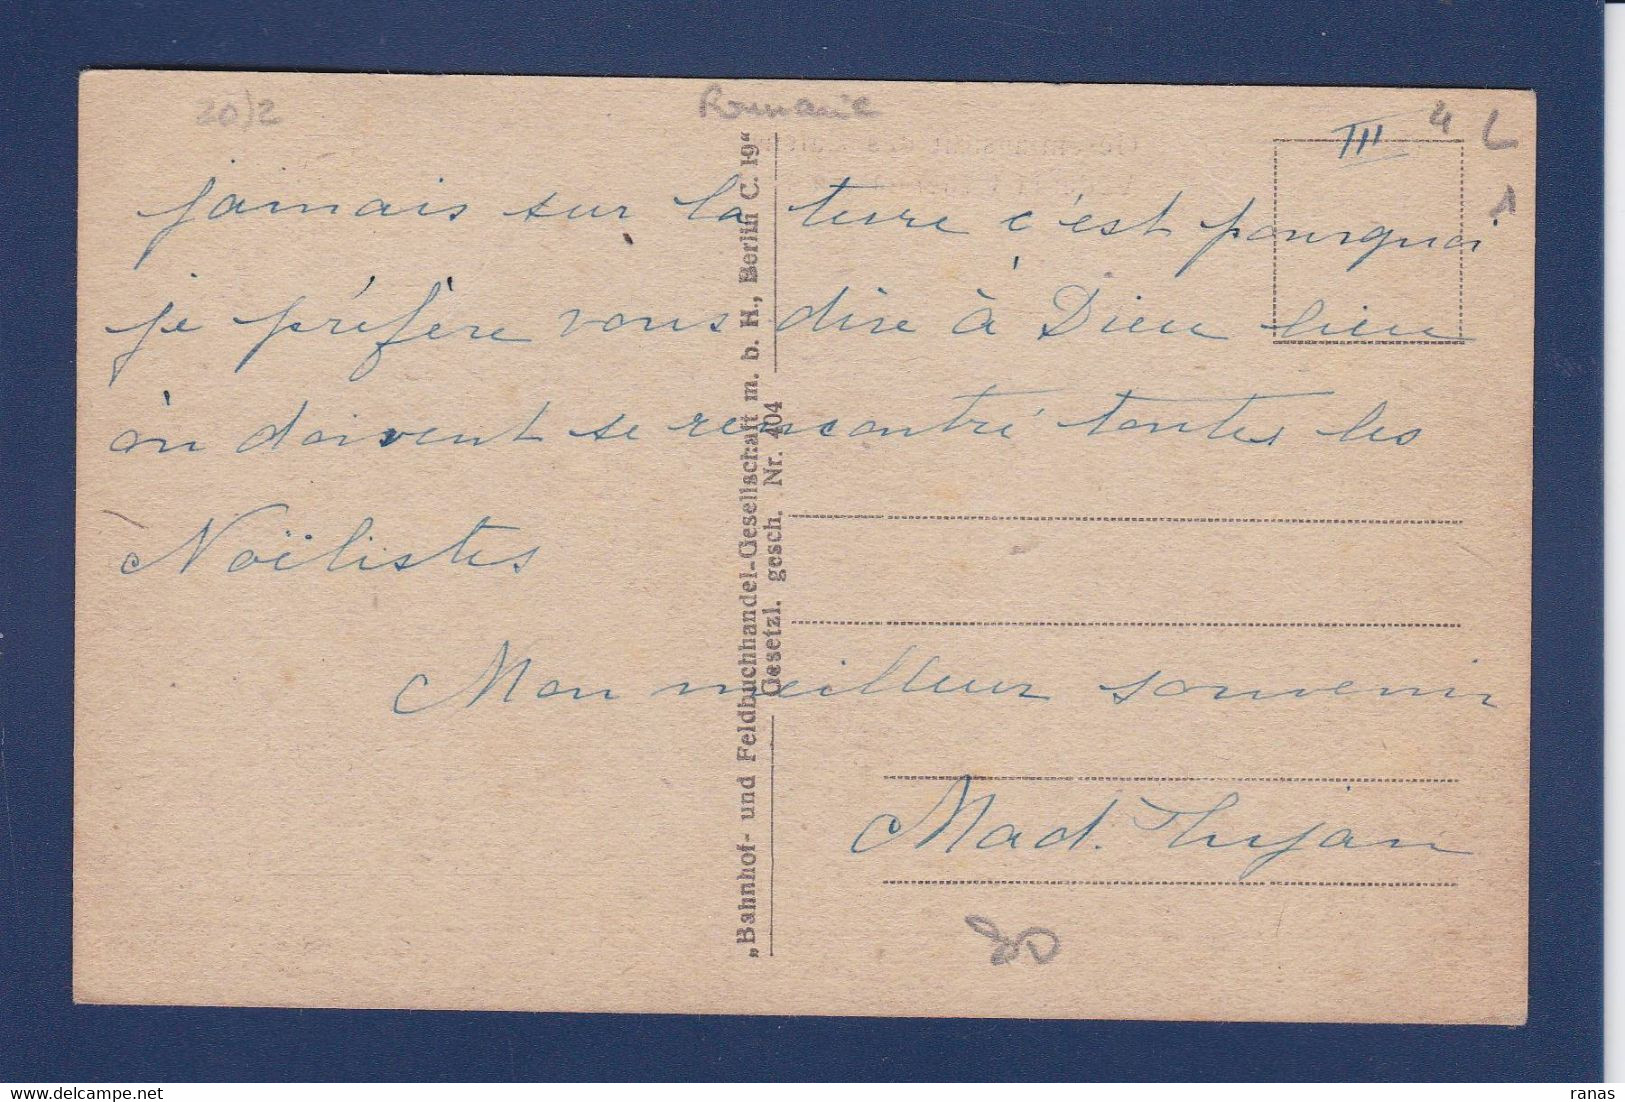 20)2
Roumanie
4
III
L
1
jamais sur la terre c'est pourquoi
je préfère vous dire à Dieu lieu
où doivent se rencontré toutes les
Noëlistes
Mon meilleur souvenir
Mad. Thujan
20
„Bahnhof- und Feldbuchhandel-Gesellschaft m. b. H., Berlin C. 19“
Gesetzl. gesch. Nr. 404
ranas